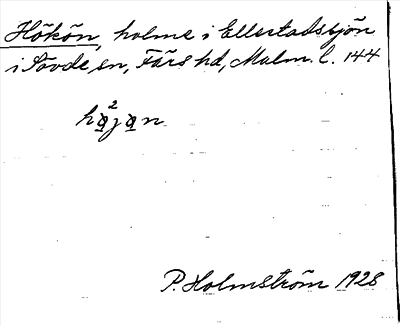 Hökön, holme i Ellestadssjön
i Sövde sn, Färs hd, Malm. l. 144
P. Holmström 1928